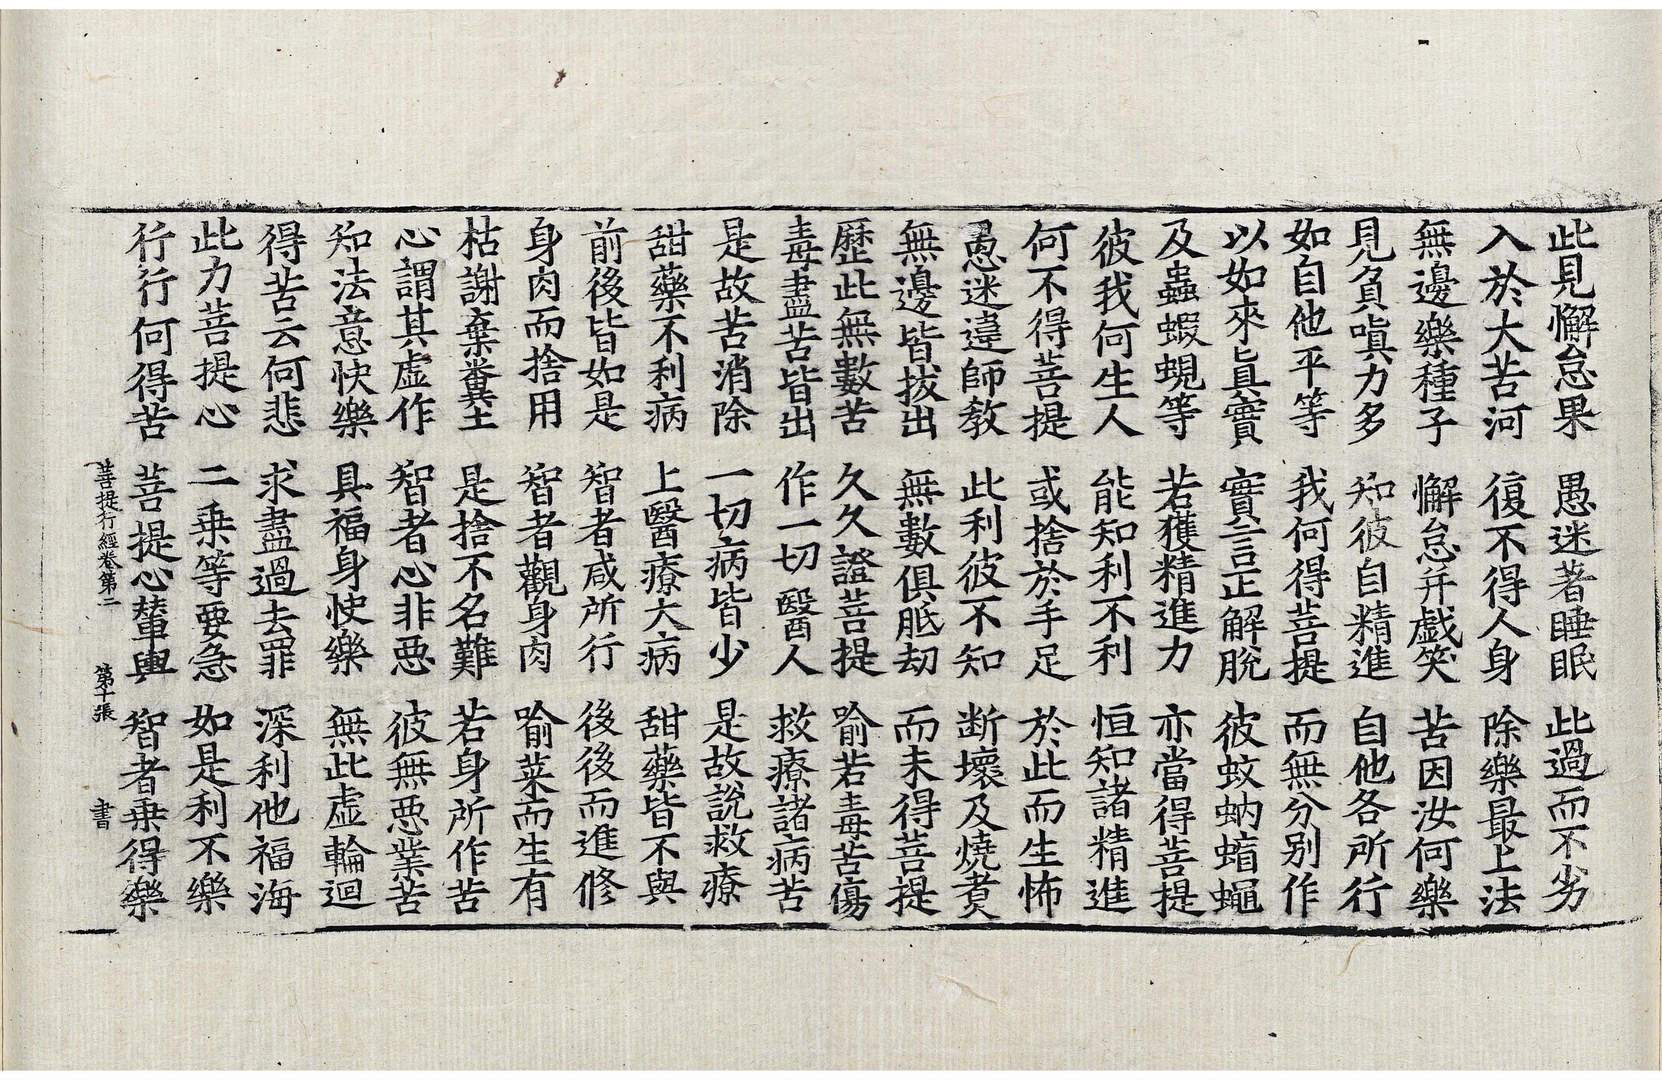 此見懈怠果　愚迷著睡眠　此過而不劣
入於大苦河　復不得人身　除樂最上法
無邊樂種子　懈怠并戯笑　苦因汝何樂
見負嗔力多　知彼自精進　自他各所行
如自他平等　我何得菩提　而無分別作
以如來真實　實言正解脫　彼蚊蚋蝱蠅
及蟲蝦蜆等　若獲精進力　亦當得菩提
彼我何生人　能知利不利　恒知諸精進
何不得菩提　或捨於手足　於此而生怖
愚迷違師教　此利彼不知　断壞及燒煮
無邊皆拔出　無數俱胝劫　而未得菩提
歷此無數苦　久久證菩提　喻若毒苦傷
毒盡苦皆出　作一切醫人　救療諸病苦
是故苦消除　一切病皆少　是故說救療
甜藥不利病　上醫療大病　甜藥皆不與
前後皆如是　智者咸所行　後後而進修
身肉而捨用　智者觀身肉　喻菜而生有
枯謝棄糞土　是捨不名難　若身所作苦
心謂其虛作　智者心非惡　彼無惡業苦
知法意快樂　具福身快樂　無此虛輪迴
得苦云何悲　求盡過去罪　深利他福海
此力菩提心　二乘等要急　如是利不樂
行行何得苦　菩提心輦輿　智者乘得樂
菩提行經卷第二　第十張　書